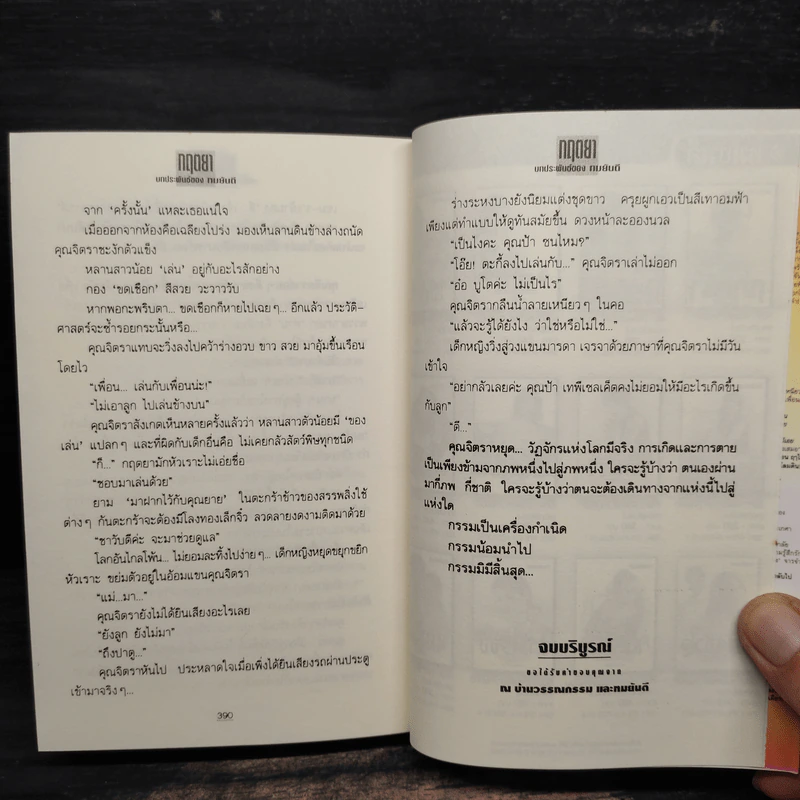 กฤตยา
บทประพันธ์ของ ทมยันตี
จาก ‘ครั้งนั้น’ แหละเธอแน่ใจ
เมื่อออกจากห้องคือเฉลียงโปร่ง มองเห็นลานดินข้างล่างถนัด
คุณจิตราชะงักตัวแข็ง
หลานสาวน้อย ‘เล่น’ อยู่กับอะไรสักอย่าง
กอง ‘ขดเชือก’ สีสวย วะวาววับ
หากพอกะพริบตา... ขดเชือกก็หายไปเฉยๆ... อีกแล้ว ประวัติ-
ศาสตร์จะซ้ำรอยกระนั้นหรือ...
คุณจิตราแทบจะวิ่งลงไปคว้าร่างอวบ ขาว สวย มาอุ้มขึ้นเรือน
โดยไว
“เพื่อน... เล่นกับเพื่อนน่ะ!”
“ไม่เอาลูก ไปเล่นข้างบน”
คุณจิตราสังเกตเห็นหลายครั้งแล้วว่า หลานสาวตัวน้อยมี ‘ของ
เล่น’ แปลกๆ และที่ผิดกับเด็กอื่นคือ ไม่เคยกลัวสัตว์พิษทุกชนิด
“ก็...” กฤตยามักหัวเราะไม่เอ่ยชื่อ
“ชอบมาเล่นด้วย”
ยาม ‘มาฝากไว้กับคุณยาย’ ในตะกร้าข้าวของสรรพสิ่งใช้
ต่างๆ กันตะกร้าจะต้องมีโลงทองเล็กจิ๋ว ลวดลายงดงามติดมาด้วย
“ซาวับดีค่ะ จะมาช่วยดูแล”
โลกอันไกลโพ้น... ไม่ยอมละทิ้งไปง่ายๆ... เด็กหญิงหยุดขยุกขยิก
หัวเราะ ขย่มตัวอยู่ในอ้อมแขนคุณจิตรา
“แม่...มา...”
คุณจิตรายังไม่ได้ยินเสียงอะไรเลย
“ยังลูก ยังไม่มา”
“ถึงปาตู...”
คุณจิตราหันไป ประหลาดใจเมื่อเพิ่งได้ยินเสียงรถผ่านประตู
เข้ามาจริงๆ...
390
กฤตยา
บทประพันธ์ของ ทมยันตี
ร่างระหงบางยังนิยมแต่งชุดขาว ครุยผูกเอวเป็นสีเทาอมฟ้า
เพียงแต่ทำแบบให้ดูทันสมัยขึ้น ดวงหน้าละอองนวล
“เป็นไงคะ คุณป้า ซนไหม?”
“โอ๊ย! ตะกี้ลงไปเล่นกับ...” คุณจิตราเล่าไม่ออก
“อ๋อ บูโตค่ะ ไม่เป็นไร”
คุณจิตรากลืนน้ำลายเหนียวๆ ในคอ
“แล้วจะรู้ได้ยังไง ว่าใช่หรือไม่ใช่...”
เด็กหญิงวิ่งสู่วงแขนมารดา เจรจาด้วยภาษาที่คุณจิตราไม่มีวัน
เข้าใจ
“อย่ากลัวเลยค่ะ คุณป้า เทพีเซลเค็ตคงไม่ยอมให้มีอะไรเกิดขึ้น
กับลูก”
“ดี...”
คุณจิตราหยุด... วัฏจักรแห่งโลกมีจริง การเกิดและการตาย
เป็นเพียงข้ามจากภพหนึ่งไปสู่ภพหนึ่ง ใครจะรู้บ้างว่า ตนเองผ่าน
มากี่ภพ กี่ชาติ ใครจะรู้บ้างว่าตนจะต้องเดินทางจากแห่งนี้ไปสู่
แห่งใด
กรรมเป็นเครื่องกำเนิด
กรรมน้อมนำไป
กรรมมิมีสิ้นสุด...
จบบริบูรณ์
ขอได้รับคำขอบคุณจาก
ณ บ้านวรรณกรรม และทมยันตี